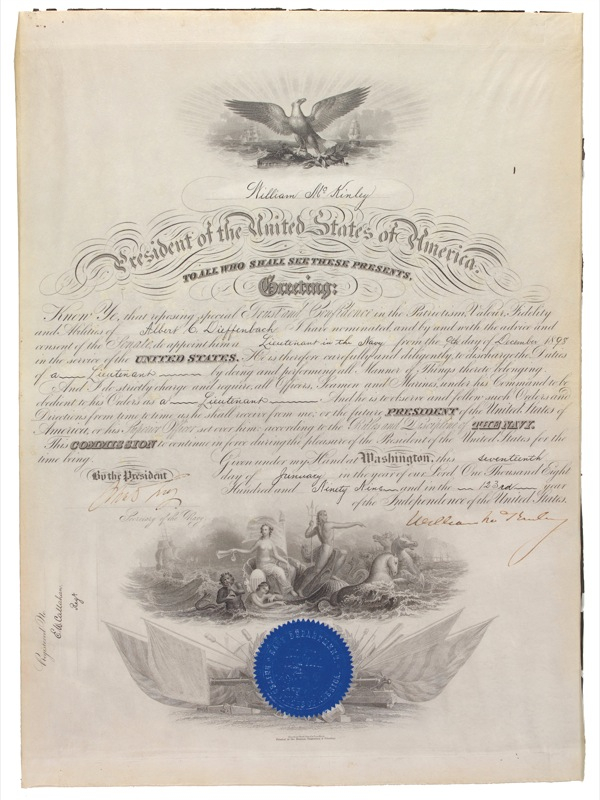 William McKinley
President of the United States of America.
TO ALL WHO SHALL SEE THESE PRESENTS,
Greeting:
Know Ye, that reposing special Trust and Confidence in the Patriotism, Valour, Fidelity
and Abilities of Albert C. Dieffenbach I have nominated, and by and with the advice and
consent of the Senate, do appoint him a Lieutenant in the Navy from the 9th day of December 1898
in the service of the UNITED STATES. He is therefore carefully and diligently, to discharge the Duties
of a Lieutenant by doing and performing all Manner of Things thereto belonging.
And I do strictly charge and require all Officers, Seamen and Marines, under his Command to be
obedient to his Orders as a Lieutenant And he is to observe and follow such Orders and
Directions from time to time as he shall receive from me, or the future PRESIDENT of the United States of
America, or his Superior Officer set over him, according to the Rules and Discipline of THE NAVY.
This COMMISSION to continue in force during the pleasure of the President of the United States for the
time being.
Given under my Hand at Washington, this seventeenth
By the President
day of January in the year of our Lord One Thousand Eight
Hundred and Ninety Nine and in the 123rd year
of the Independence of the United States.
William McKinley
Secretary of the Navy
Registered No.
NAVY DEPARTMENT